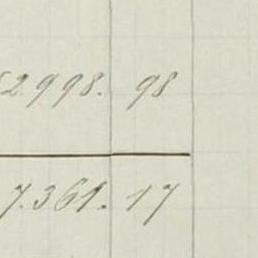 2.998. 98
7.361. 17